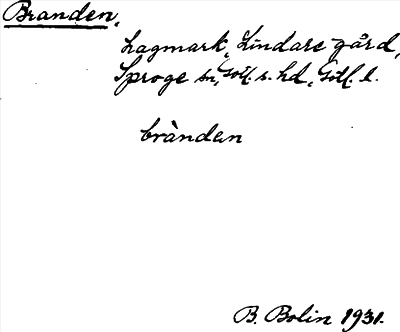 Branden,
hagmark, Lindarе gård,
Sproge sn, Gotl. s. hd, Gotl. l.
brànden
B. Bolin 1931.